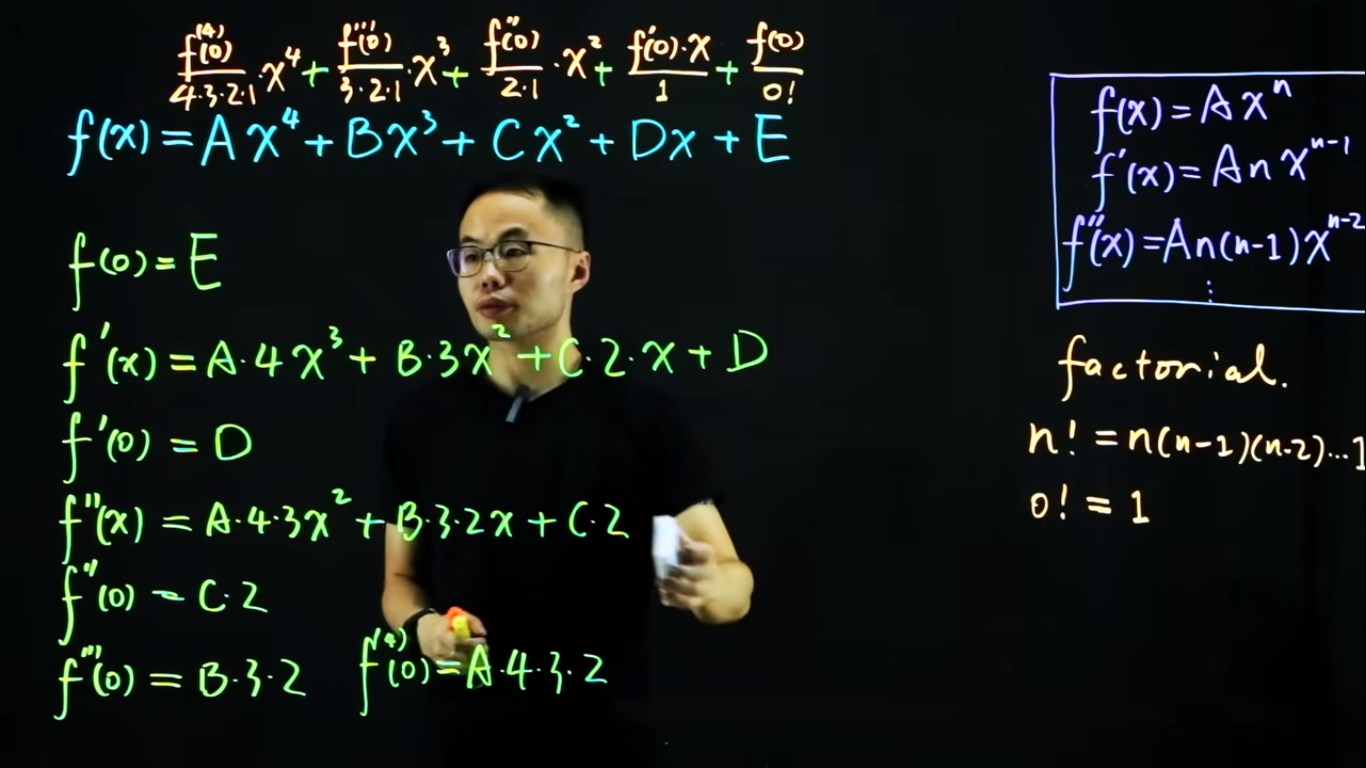 f⁽⁴⁾(0)/4·3·2·1 ·x⁴ + f'''(0)/3·2·1 ·x³ + f''(0)/2·1 ·x² + f'(0)·x/1 + f(0)/0!
f(x) = Ax⁴ + Bx³ + Cx² + Dx + E
f(0) = E
f'(x) = A·4x³ + B·3x² + C·2·x + D
f'(0) = D
f''(x) = A·4·3x² + B·3·2x + C·2
f''(0) = C·2
f'''(0) = B·3·2 f⁽⁴⁾(0) = A·4·3·2
f(x) = Axⁿ
f'(x) = Anxⁿ⁻¹
f''(x) = An(n-1)xⁿ⁻²
⋮
factorial.
n! = n(n-1)(n-2)...1
0! = 1